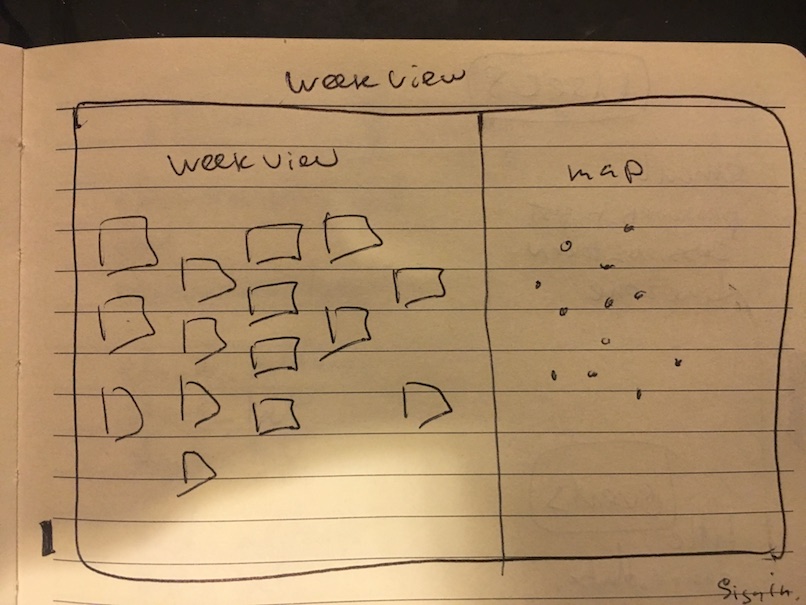 week view
week view
map
Sign in.